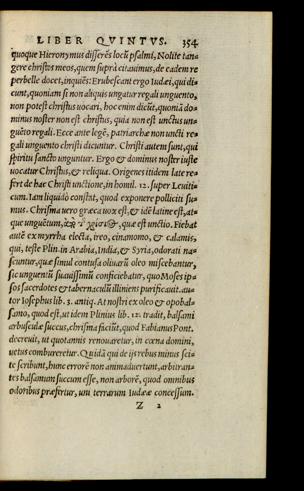 LIBER QVINTVS. 354
quoque Hieronymus disserēs locū psalmi, Nolite tan=
gere christos meos, quem suprà citauimus, de eadem re
perbelle docet, inquiēs: Erubescant ergo Iudæi, qui di=
cunt, quoniam si non aliquis ungatur regali unguento,
non potest christus uocari, hoc enim dicūt, quoniā do=
minus noster non est christus, quia non est unctus un=
guēto regali. Ecce ante legē, patriarchæ non uncti re=
gali unguento christi dicuntur. Christi autem sunt, qui
spiritu sancto unguntur. Ergo & dominus noster iuste
uocatur Christus, & reliqua. Origenes itidem late re=
fert de hac Christi unctione, in homil. 12. super Leuiti=
cum. Iam liquidò constat, quod exponere polliciti su=
mus. Chrisma uero græca uox est, & idē latine est, at=
que unguētum, quæ est unctio. Fiebat
autē ex myrrha electa, ireo, cinamomo, & calamis,
qui, teste Plin. in Arabia, India, & Syria, odorati na=
scuntur, quæ simul contusa oliuarū oleo miscebantur,
sic unguentū suauissimū conficiebatur, quo Moses ip=
sos sacerdotes & tabernaculū illiniens purificauit. au=
tor Iosephus lib. 3. antiq. At nostri ex oleo & opobal=
samo, quod est, ut idem Plinius lib. 12. tradit, balsami
arbusculæ succus, chrisma faciūt, quod Fabianus Pont.
decreuit, ut quotannis renouaretur, in cœna domini,
uetus combureretur. Quidā qui de ijs rebus minus sci=
te scribunt, hunc errorē non animaduertunt, arbitran=
tes balsamum succum esse, non arborē, quod omnibus
odoribus præfertur, uni terrarum Iudææ concessum.
Z 2